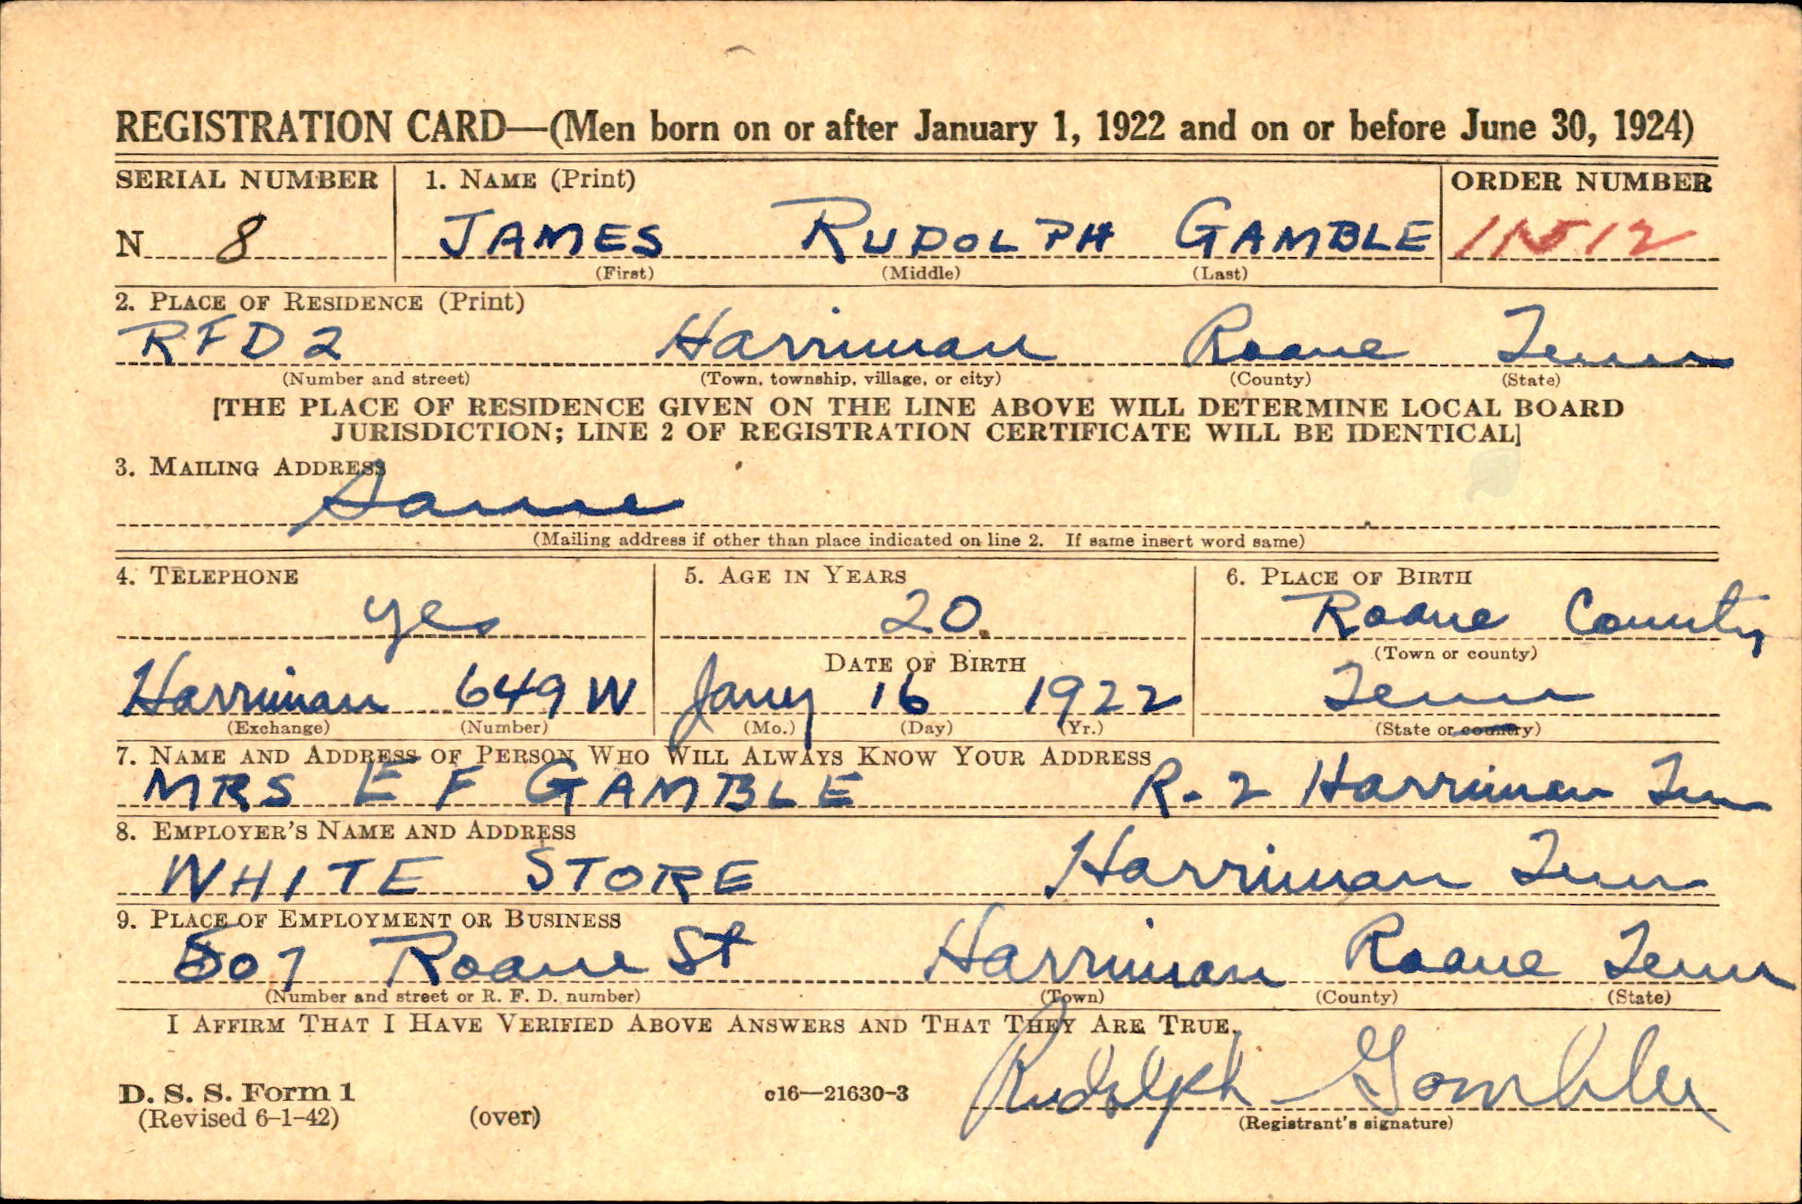 REGISTRATION CARD—(Men born on or after January 1, 1922 and on or before June 30, 1924)
SERIAL NUMBER 1. NAME (Print) ORDER NUMBER
N 8 JAMES RUDOLPH GAMBLE
(First) (Middle) (Last)
2. PLACE OF RESIDENCE (Print)
RFD 2 Harriman Roane Tenn
(Number and street) (Town, township, village, or city) (County) (State)
[THE PLACE OF RESIDENCE GIVEN ON THE LINE ABOVE WILL DETERMINE LOCAL BOARD
JURISDICTION; LINE 2 OF REGISTRATION CERTIFICATE WILL BE IDENTICAL]
3. MAILING ADDRESS
Same
(Mailing address if other than place indicated on line 2. If same insert word same)
4. TELEPHONE 5. AGE IN YEARS 6. PLACE OF BIRTH
yes 20 Roane County
DATE OF BIRTH (Town or county)
Harriman 649 W Jany 16 1922 Tenn
(Exchange) (Number) (Mo.) (Day) (Yr.) (State or country)
7. NAME AND ADDRESS OF PERSON WHO WILL ALWAYS KNOW YOUR ADDRESS
MRS E F GAMBLE R-2 Harriman Tenn
8. EMPLOYER'S NAME AND ADDRESS
WHITE STORE Harriman Tenn
9. PLACE OF EMPLOYMENT OR BUSINESS
507 Roane St Harriman Roane Tenn
(Number and street or R. F. D. number) (Town) (County) (State)
I AFFIRM THAT I HAVE VERIFIED ABOVE ANSWERS AND THAT THEY ARE TRUE.
Rudolph Gamble
D. S. S. Form 1 c16—21630-3
(Revised 6-1-42) (over) (Registrant's signature)